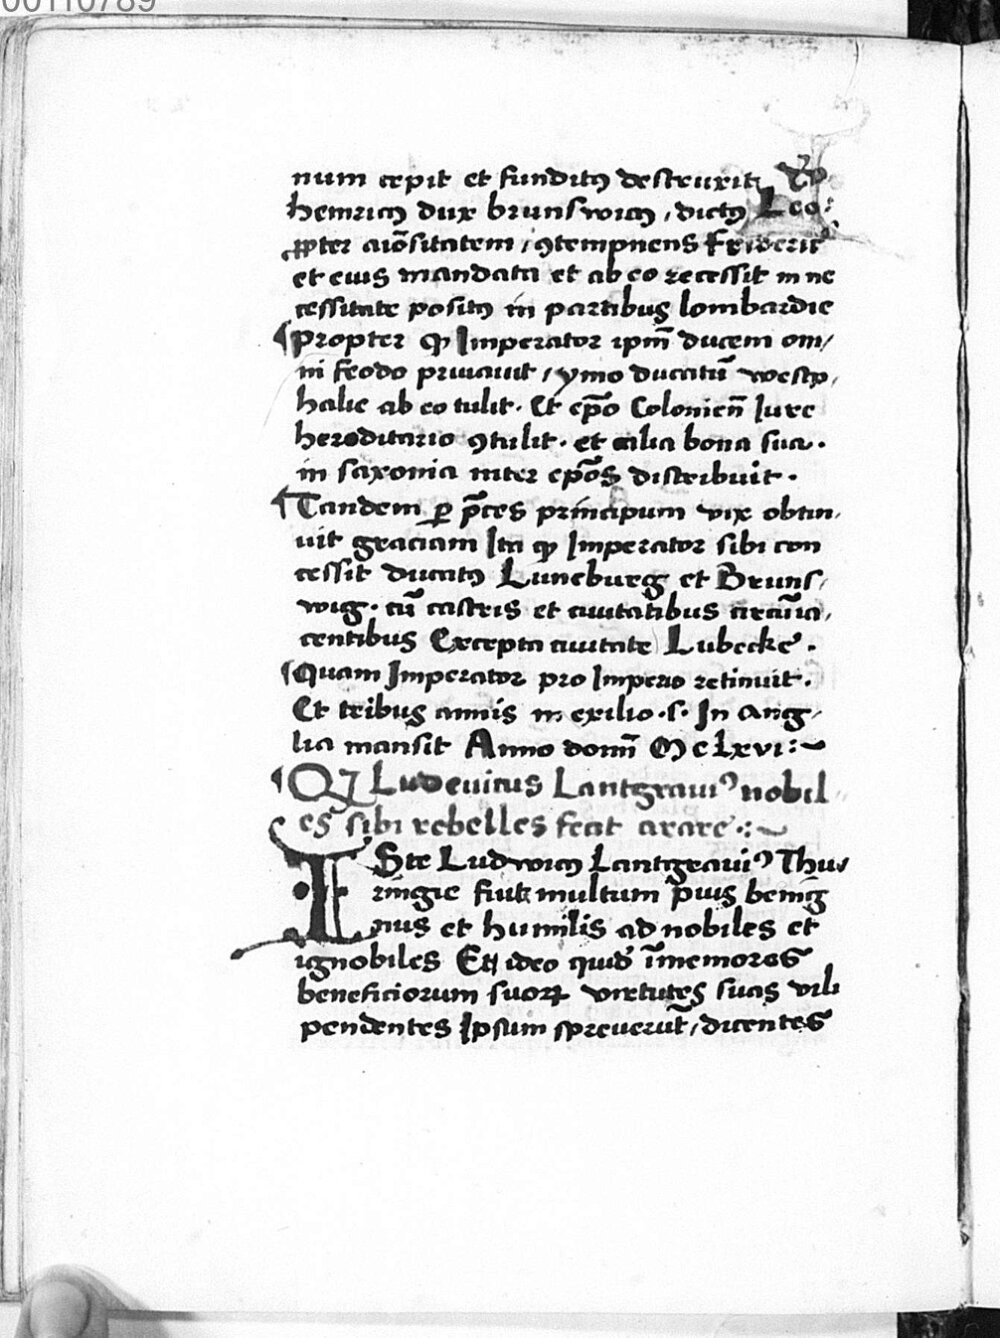 00110789
num cepit et funditꝰ destruxit
heinricꝰ dux brunswicꝰ, dictꝰ Leo:
ꝓpter aĩositatem, ꝯtempnens Frideric̄
et eius mandata et ab eo recessit in ne
cessitate positꝰ in partibus lombardie
¶Propter ꝙ Imperator ipm̄ ducem om/
ni feodo priuauit, ymo ducatū westp,
halie ab eo tulit. Et ep̄o Colonien̄ Iure
hereditario ꝯtulit. et alia bona sua.
in saxonia inter ep̄os distribuit.
¶Tandem ꝑ p̄ces principum vix obtin,
uit graciam Ita ꝙ Imperator sibi con
cessit ducatꝰ Luneburg et Bruns,
wig. cū castris et ciuitatibus circūia,
centibus Excepta ciuitate Lubecke.
¶Quam Imperator pro Imperio retinuit.
Et tribus annis in exilio .s. In Ang,
lia mansit Anno domī Mclxvi:~
¶Qꝫ Ludeuicus Lantgrauiꝰ nobil
es sibi rebelles fecit arare.:~
ISte Ludwicꝰ Lantgrauiꝰ Thu/
ringie fuit multum pius benig
nus et humilis ad nobiles et
ignobiles Et ideo quid̄ īmemores
beneficiorum suoꝝ virtutes suas vili
pendentes Ipsum spreuerūt, dicentes